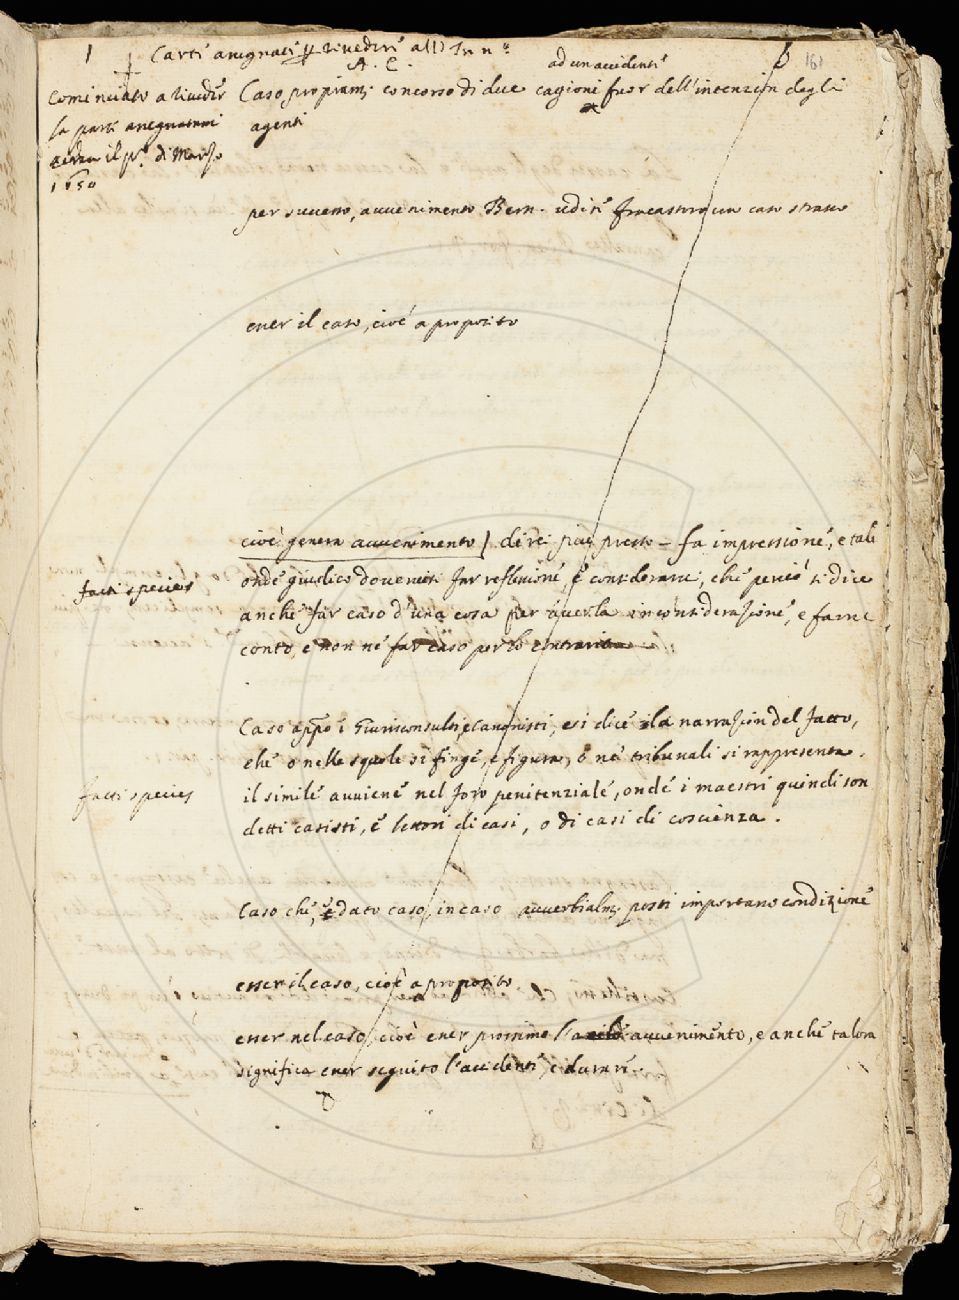 1 Carti assegnati p rivederi all' Inn.
A. C.
161
Cominciato a riveder
la parti assegnatami
il p.º di Marzo
1650
ad un accidenti
Caso propriamᵗ concorso di due cagioni fuor dell'intenzion degli
agenti
per successo, avvenimento Bern. uditi Fracastoro un caso strano
esser il caso, cioè a proposito
cioè genera avvenimento / direi piu presto – fa impressione, e tali
facti species
onde giudico doversi far reflessione, e considerarvi, che perciò si dice
anche far caso d'una cosa per averla in considerazione, e farne
conto, e non ne far caso per lo contrario
Caso appo i Giurisconsulti, e Canonisti, e si dice la narrazion del facto,
che o nelle squole si finge, e figura, o ne' tribunali si rappresenta.
facti species
il simile avviene nel foro penitenziale, onde i maestri quindi son
detti casisti, e lettori di casi, o di casi di coscienza.
Caso che, e dato caso, in caso avverbialmᵗ posti importano condizione
esser il caso, cioè a proposito
esser nel caso, cioè esser prossimo l' avvenimento, e anche talora
significa esser seguito l'accidenti, e durari.